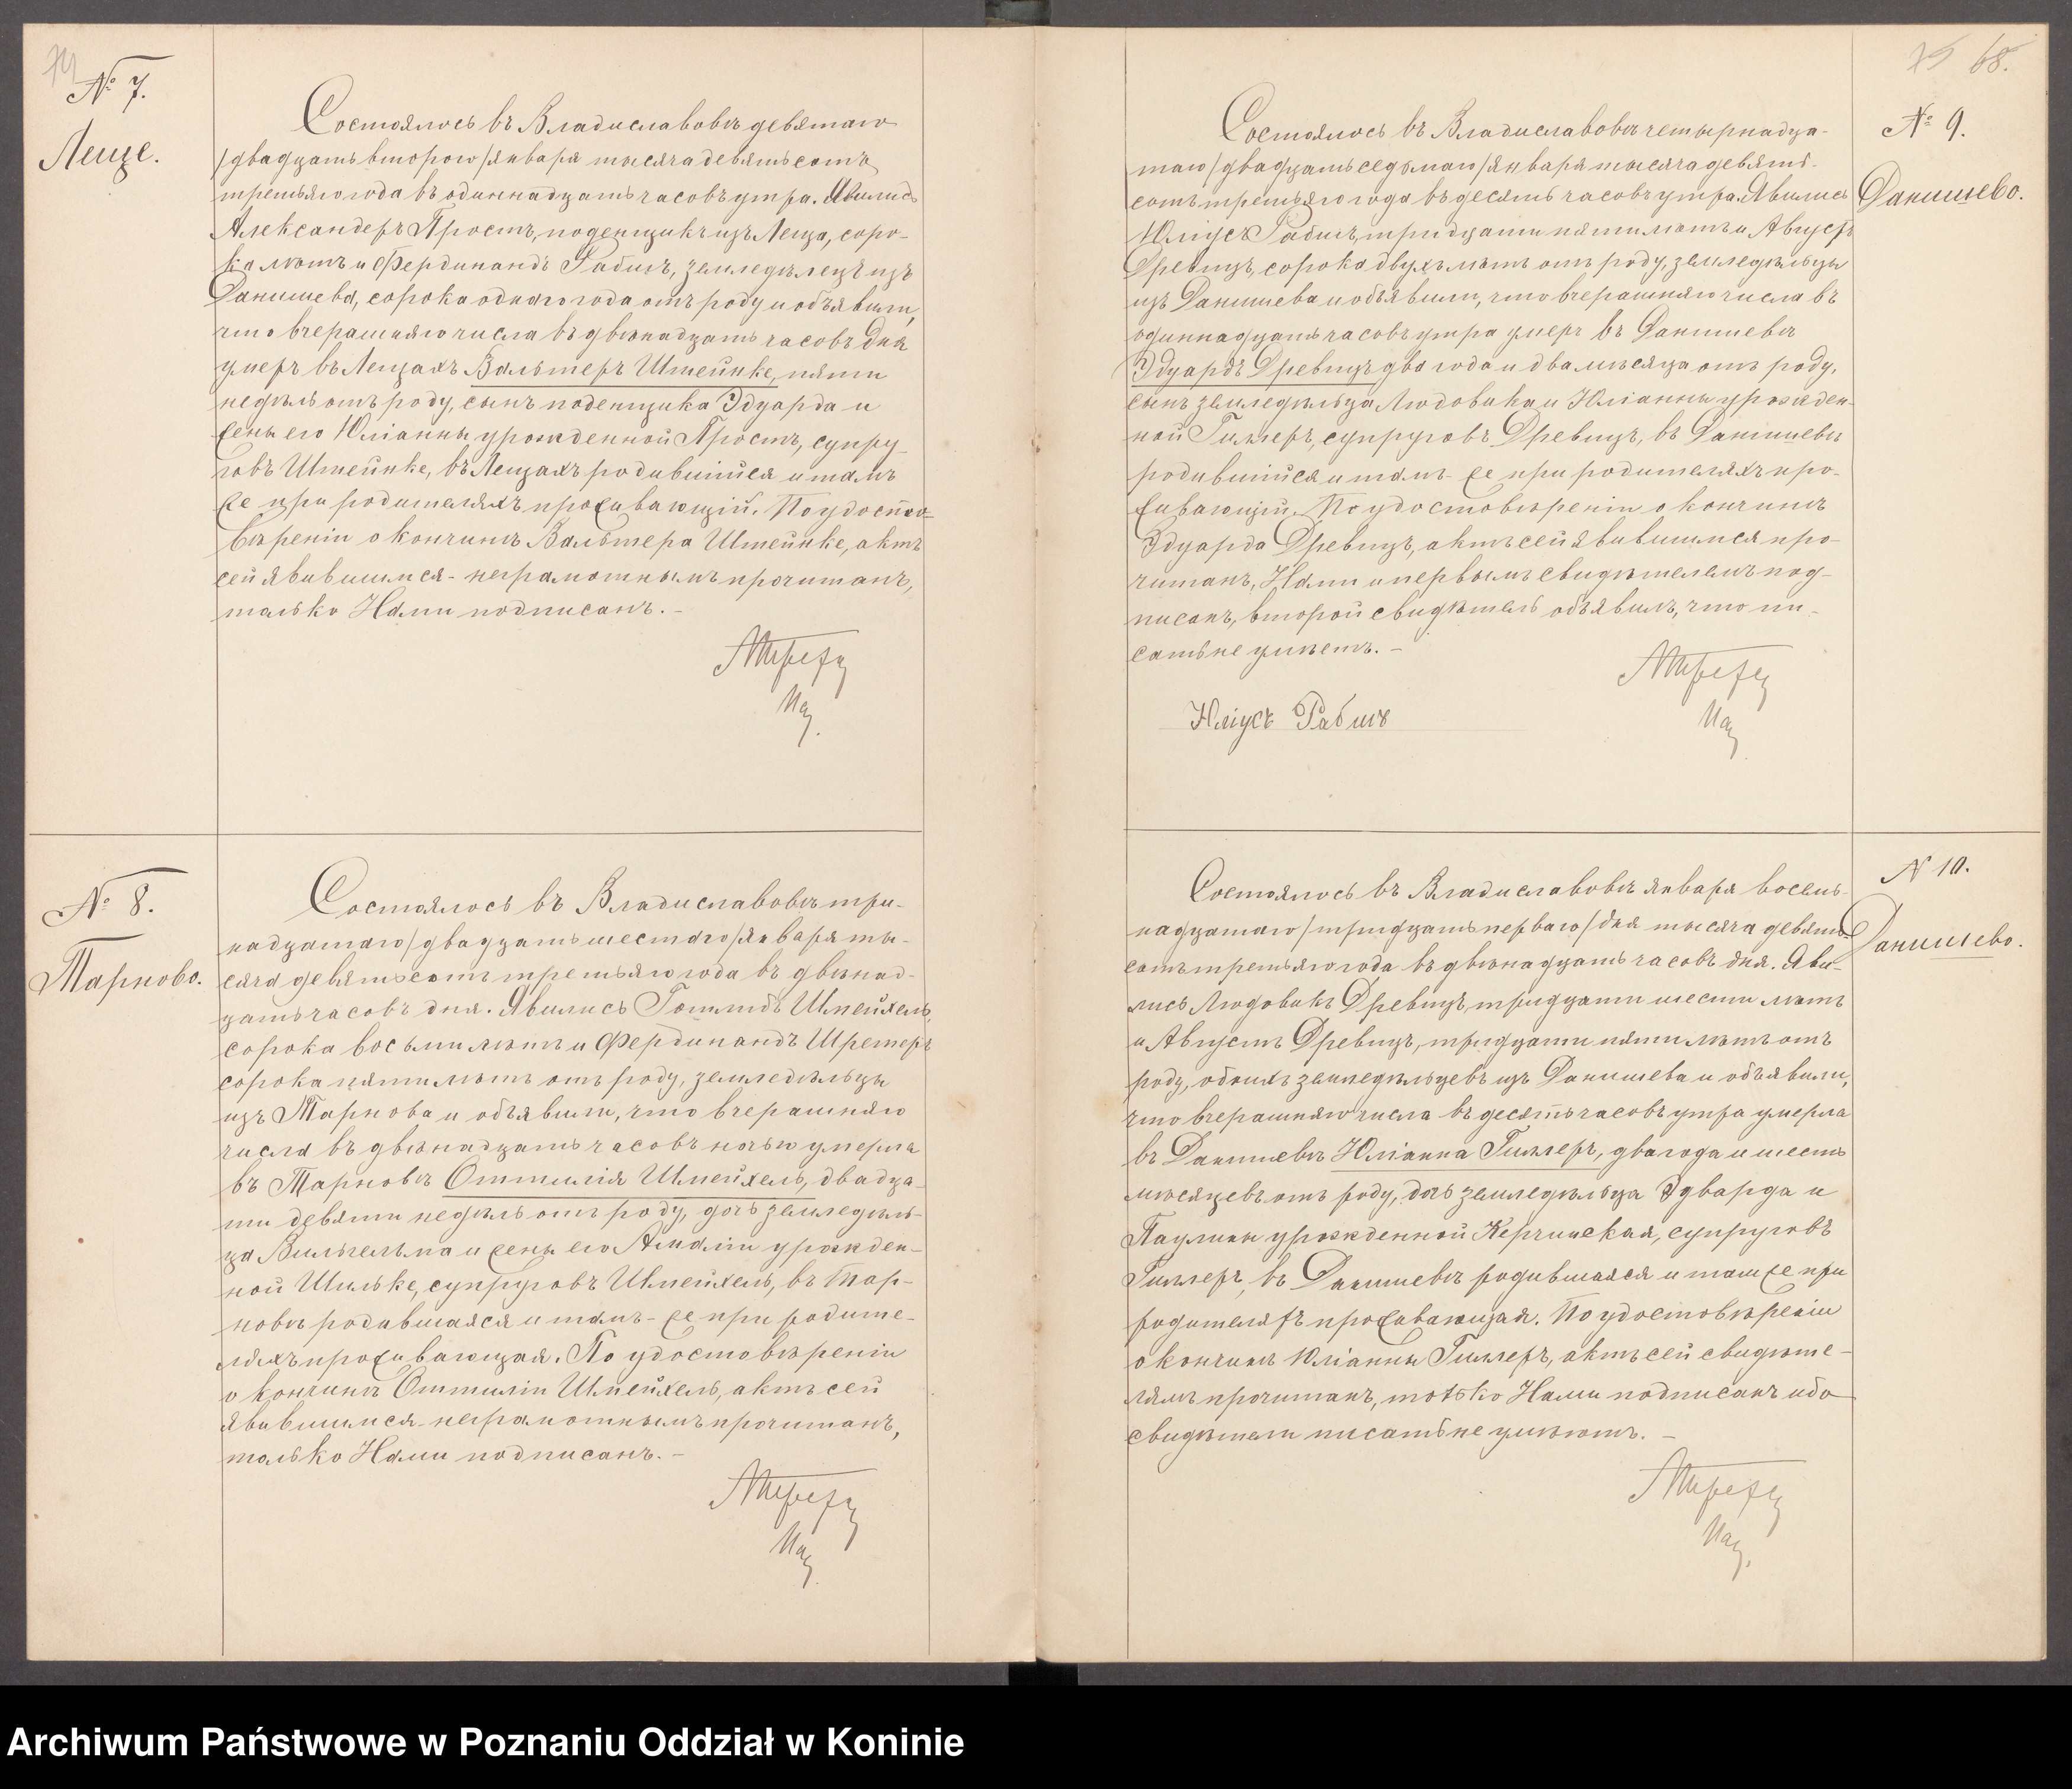 № 7.
Леще.
Состоялось въ Владиславовѣ девятаго
/двадцать второго/ января тысяча девятьсотъ
третьяго года въ одиннадцать часовъ утра. Явились
Александеръ Простъ, поденщикъ изъ Леща, соро-
ка лѣтъ и Фердинандъ Рабишъ, земледѣлецъ изъ
Данишева, сорока одного года отъ роду и объявили,
что вчерашняго числа въ двѣнадцать часовъ дня
умеръ въ Лещахъ Вальтеръ Штейнке, пяти
недѣль отъ роду, сынъ поденщика Эдуарда и
жены его Юліанны урожденной Простъ, супру-
говъ Штейнке, въ Лещахъ родившійся и тамъ
же при родителяхъ проживающій. По удосто-
вѣреніи о кончинѣ Вальтера Штейнке, актъ
сей явившимся - неграмотнымъ прочитанъ,
только Нами подписанъ. -
№ 8.
Тарново.
Состоялось въ Владиславовѣ три-
надцатаго /двадцать шестаго/ января ты-
сяча девятьсотъ третьяго года въ двѣнад-
цать часовъ дня. Явились Готлибъ Шмейхель,
сорока восьми лѣтъ и Фердинандъ Шретеръ
сорока пяти лѣтъ отъ роду, земледѣльцы
изъ Тарнова и объявили, что вчерашняго
числа въ двѣнадцать часовъ ночью умерла
въ Тарновѣ Оттилія Шмейхель, двадца-
ти девяти недѣль отъ роду, дочь земледѣль-
ца Вильгельма и жены его Амаліи урожден-
ной Шильке, супруговъ Шмейхель, въ Тар-
новѣ родившаяся и тамъ - же при родите-
ляхъ проживающая. По удостовѣреніи
о кончинѣ Оттиліи Шмейхель, актъ сей
явившимся - неграмотнымъ прочитанъ,
только Нами подписанъ. -
75 68.
№ 9.
Данишево.
Состоялось въ Владиславовѣ четырнадца-
таго /двадцать седьмаго/ января тысяча девять-
сотъ третьяго года въ десять часовъ утра. Явились
Юліусъ Рабишъ, тридцати пяти лѣтъ и Августъ
Древицъ, сорока двухъ лѣтъ отъ роду, земледѣльцы
изъ Данишева и объявили, что вчерашняго числа въ
одиннадцать часовъ утра умеръ въ Данишевѣ
Эдуардъ Древицъ два года и два мѣсяца отъ роду,
сынъ земледѣльца Людовика и Юліанны урожден-
ной Гиллеръ, супруговъ Древицъ, въ Данишевѣ
родившійся и тамъ - же при родителяхъ про-
живающій. По удостовѣреніи о кончинѣ
Эдуарда Древицъ, актъ сей явившимся про-
читанъ, Нами и первымъ свидѣтелемъ под-
писанъ, второй свидѣтель объявилъ, что пи-
сать не умѣетъ. -
Юліусъ Рабишъ
N 10.
Данишево.
Состоялось въ Владиславовѣ января восемь-
надцатаго /тридцать перваго/ дня тысяча девять-
сотъ третьяго года въ двѣнадцать часовъ дня. Яви-
лись Людовикъ Древицъ, тридцати шести лѣтъ
и Августъ Древицъ, тридцати пяти лѣтъ отъ
роду, обоихъ земледѣльцевъ изъ Данишева и объявили,
что вчерашняго числа въ десять часовъ утра умерла
въ Данишевѣ Юліанна Гиллеръ, два года и шесть
мѣсяцевъ отъ роду, дочь земледѣльца Эдварда и
Паулины урожденной Керчинская, супруговъ
Гиллеръ, въ Данишевѣ родившаяся и тамже при
родителяхъ проживающая. По удостовѣреніи
о кончинѣ Юліанны Гиллеръ, актъ сей свидѣте-
лямъ прочитанъ, только Нами подписанъ ибо
свидѣтели писать не умѣютъ. -
Archiwum Państwowe w Poznaniu Oddział w Koninie